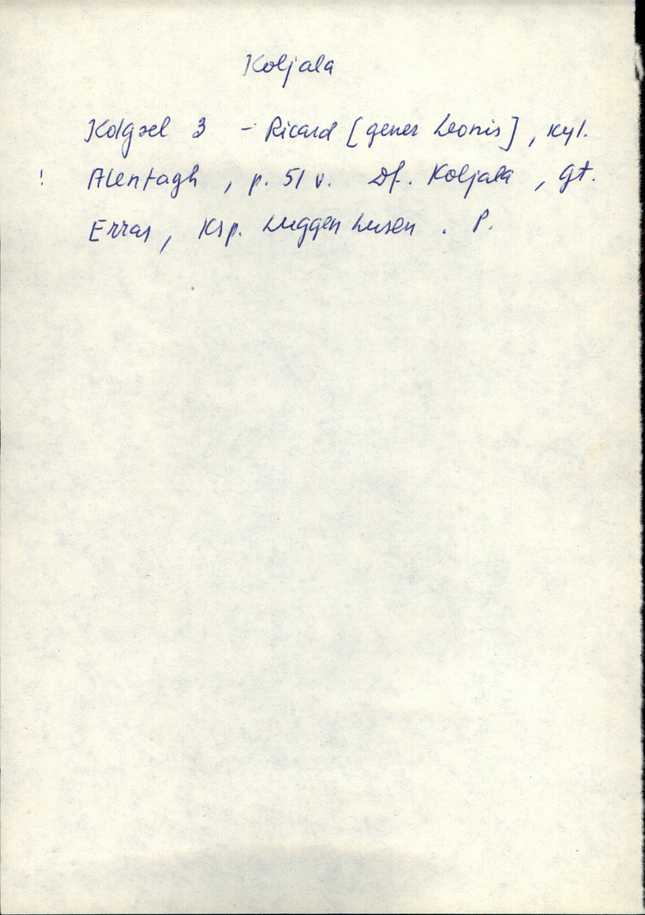 Koljala
Kolgæl 3 - Ricard [gener Leonis], Kyl.
! Alentagh, p. 51 v. Df. Koljala, gt.
Erras, Ksp. Luggenhusen. P.